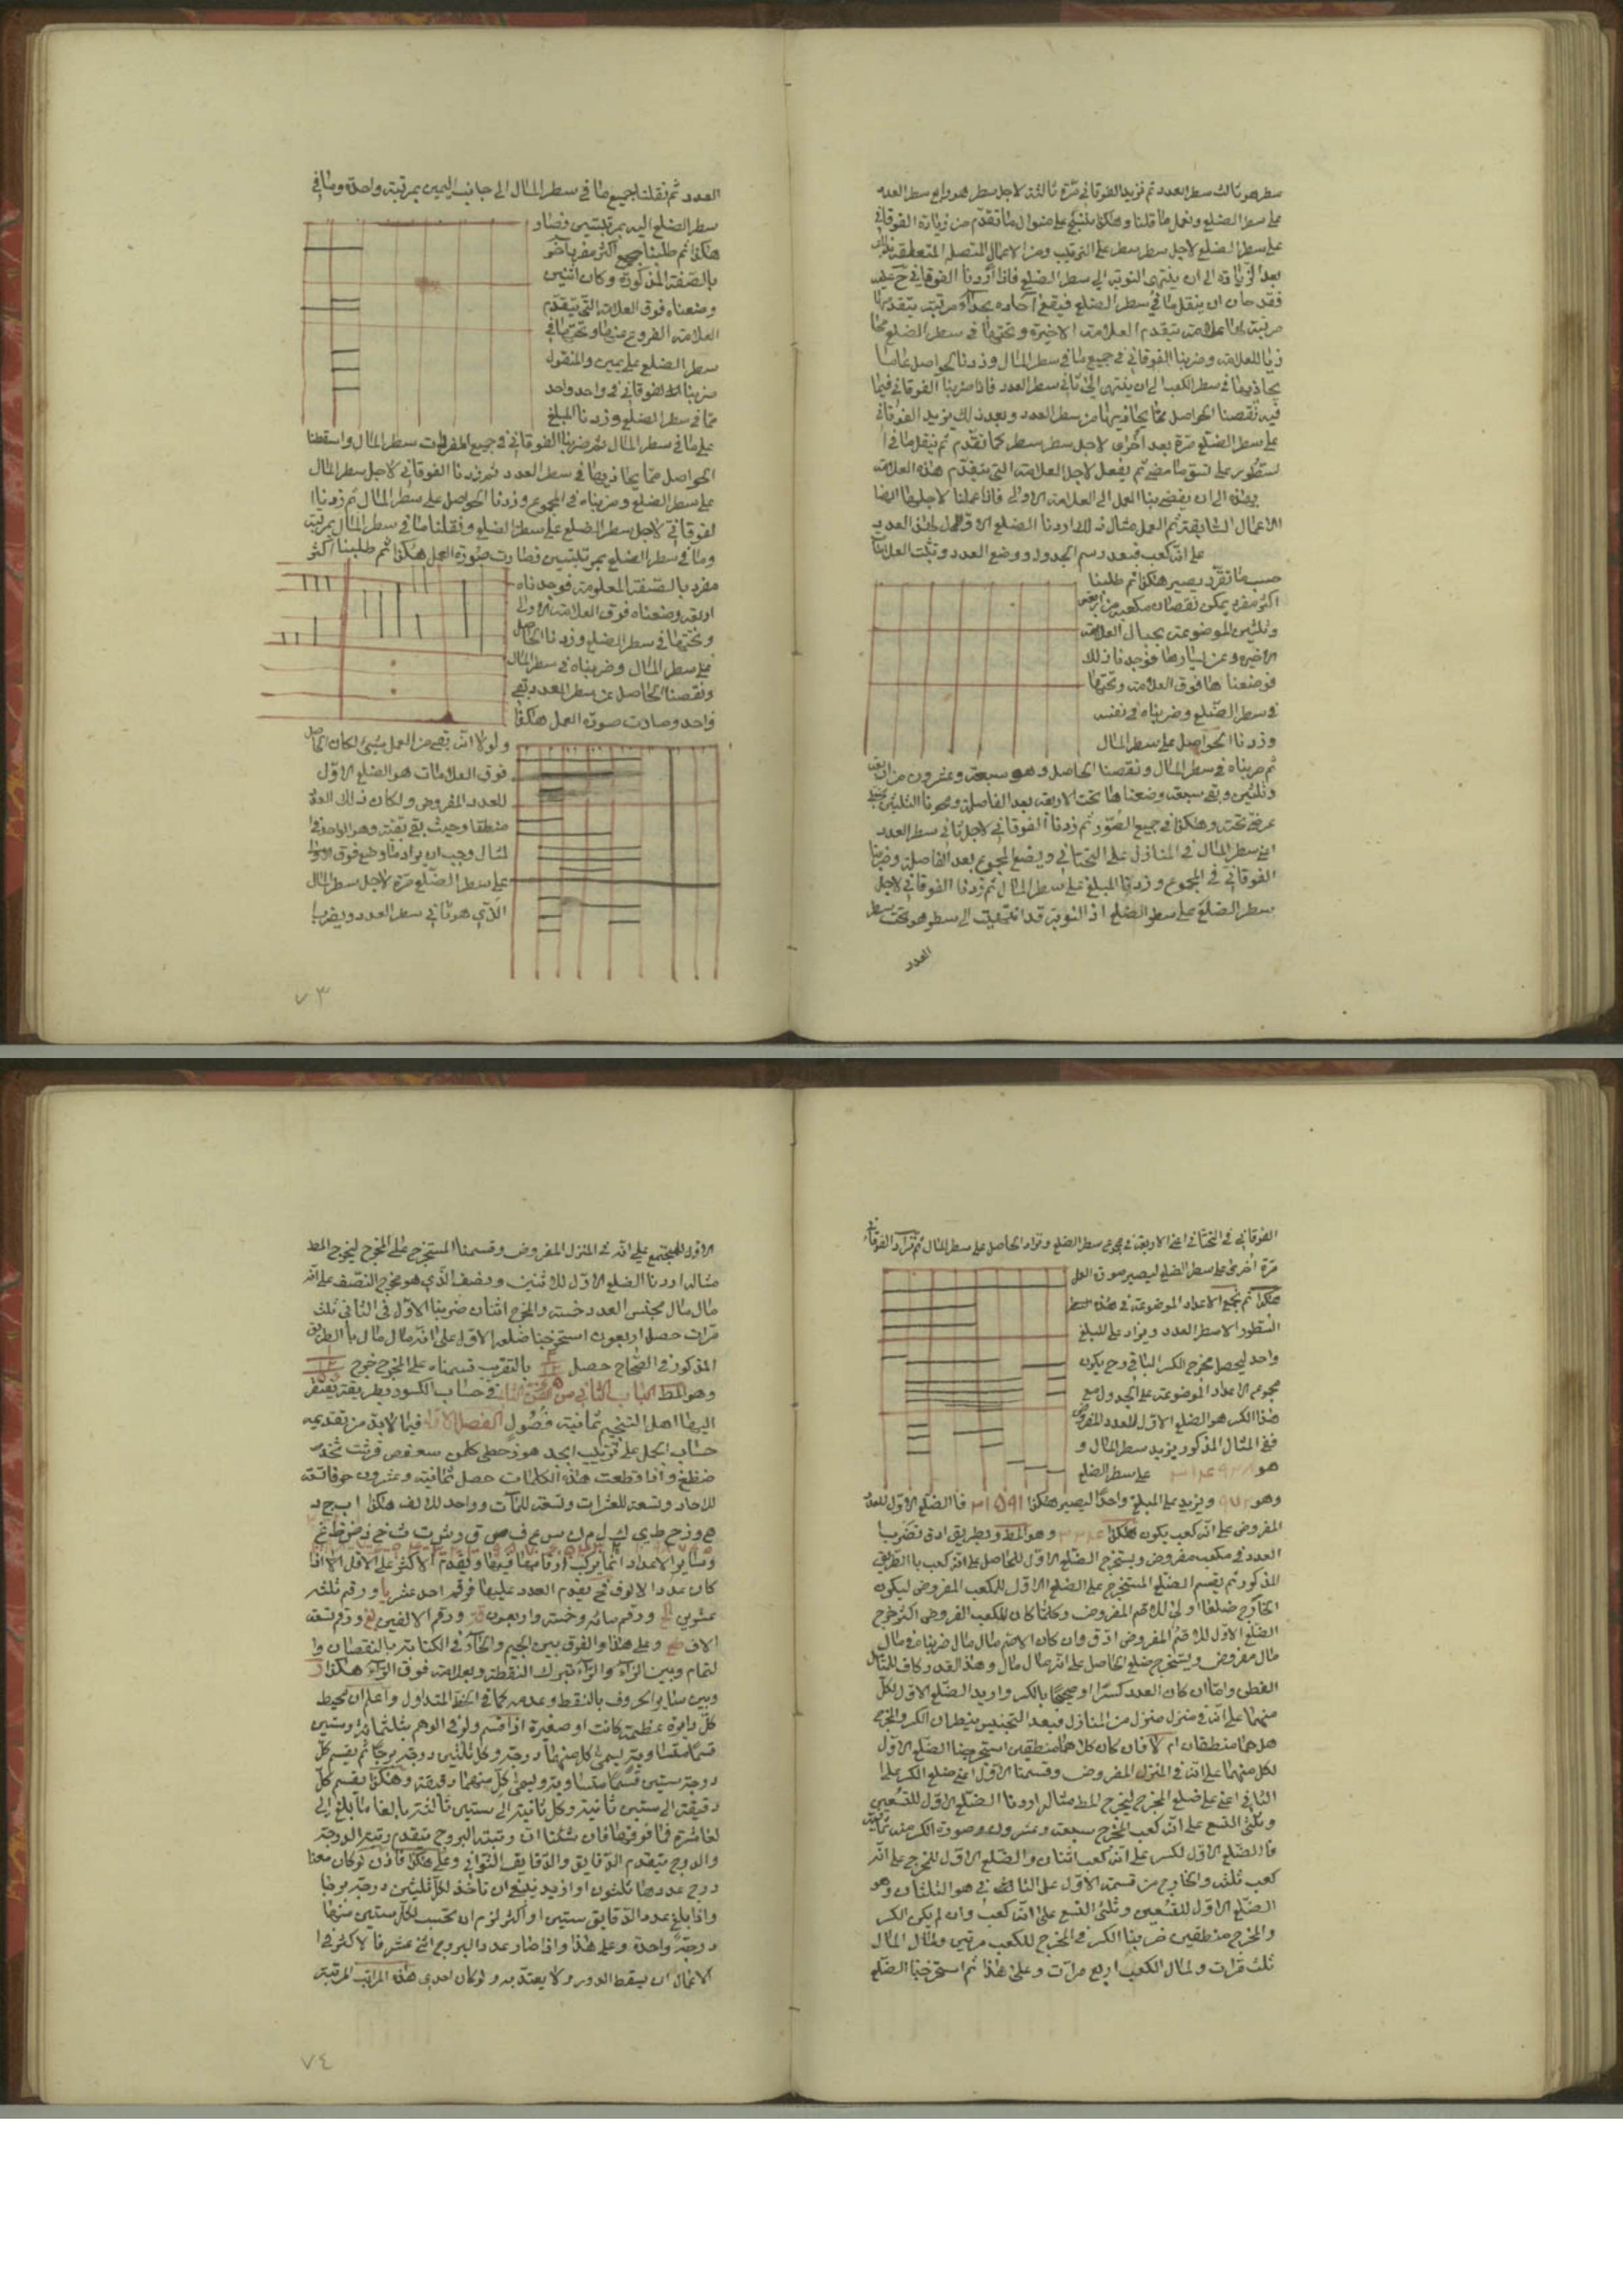 سطر هو ثالث سطر العدد ثم نزيد الفوقاني مرة ثالثة لاجل سطر هو رابع سطر العدد
على سطر الضلع ونعمل ما قلنا وهكذا على منوال ما تقدم من زيادة الفوقاني
على سطر الضلع لاجل سطر سطر على الترتيب ومن الاعمال المتصلة المتعلقة
بعد الزيادة الى ان ينتهى النوبة الى سطر الضلع فاذا زدنا الفوقاني ح عليه
فقد حان ان ينقل ما في سطر الضلع فيقع آحاده بحذاء مرتبة يتقدمها
مرتبة لها علامة يتقدم العلامة الاخيرة وتحتها في سطر الضلع
للعلامة وضربنا الفوقاني في جميع ما في سطر المال وزدنا الحواصل على ما
يحاذيها في سطر الكعب الى ان ينتهى الى ثاني سطر العدد فاذا ضربنا الفوقاني فيما
فيه نقصنا الحواصل مما يحاذيها من سطر العدد وبعد ذلك نزيد الفوقاني
على سطر الضلع مرة بعد اخرى لاجل سطر سطر كما تقدم ثم ينقل ما في ا
لسطور على نسق ما مضى ثم يفعل لاجل العلامة التي يتقدم هذه العلامة
هذه الى ان يفضى بنا العمل الى العلامة الاولى فاذا عملنا لاجلها ايضا
الاعمال السابقة تم العمل مثال ذلك اردنا الضلع الاول لهذا العدد
على انه كعب فبعد رسم الجدول ووضع العدد وتثبت العلامات
حسب ما تقرر يصير هكذا ثم طلبنا
اكثر مفرد يمكن نقصان مكعبه من اربعة
وثلثين الموضوعة بحيال العلامة
الاخيرة وعن يسارها فوجدنا ذلك
فوضعناها فوق العلامة وتحتها
في سطر الضلع وضربناه في نفسه
وزدنا الحواصل على سطر المال
ثم ضربناه في سطر المال ونقصنا الحاصل وهو سبعة وعشرون من اربعة
وثلثين وبقى سبعة وضعناها تحت الاربعة بعد الفاصلة ومحونا الثلثين
وهكذا في جميع الصور ثم زدنا الفوقاني لاجل ثاني سطر العدد
اعنى سطر المال في المنازل على التحتاني ويضع المجموع بعد الفاصلة وضربنا
الفوقاني في المجموع وزدنا المبلغ على سطر المال ثم زدنا الفوقاني لاجل
سطر الضلع على سطر الضلع اذ النوبة قد انتهيت الى سطر هو تحت سطر
العدد
العدد ثم نقلنا جميع ما في سطر المال الى جانب اليمين بمرتبة واحدة وما في
سطر الضلع اليه بمرتبتين فصار
هكذا ثم طلبنا اكثر مفرد آخر
بالصفة المذكورة وكان اثنين
وضعناه فوق العلامة التي يتقدم
العلامة الفروغ عنها وتحتها في
سطر الضلع على يمين والمنقول
ضربنا الفوقاني في واحد واحد
مما في سطر الضلع وزدنا المبلغ
على ما في سطر المال ثم ضربنا الفوقاني في جميع المفردات سطر المال واسقطنا
الحواصل مما يحاذيها في سطر العدد ثم زدنا الفوقاني لاجل سطر المال
على سطر الضلع وضربناه في المجموع وزدنا الحواصل على سطر المال ثم زدنا ا
لفوقاني لاجل سطر الضلع على سطر الضلع ونقلنا ما في سطر المال بمرتبة
وما في سطر الضلع بمرتبتين فصارت صورة العمل هكذا ثم طلبنا اكثر
مفرد بالصفة المعلومة فوجدناه
اربعة وضعناه فوق العلامة الاولى
وتحتها في سطر الضلع وزدنا الحاصل
على سطر المال وضربناه في سطر المال
ونقصنا الحاصل من سطر العدد بقى
واحد وصارت صورة العمل هكذا
ولولا انه بقى من العمل شيئ لكان الحاصل
فوق العلامات هو الضلع الاول
للعدد المفروض ولكان ذلك العدد
منطقا وحيث بقى بقية وهو الواحد في ا
لمثال وجب ان يزاد ما وضع فوق الاولى
على سطر الضلع مرة لاجل سطر المال
الذي هو ثاني سطر العدد ويضرب ا
٧٣
الفوقاني في التحتاني اعنى الاربعة في مجموع سطر الضلع وتزاد الحاصل على سطر المال ثم تزاد الفوقاني
مرة اخرى على سطر الضلع ليصير صورة العمل
هكذا ثم نجمع الاعداد الموضوعة في هذه
السطور الا سطر العدد ويزاد على المبلغ
واحد ليحصل مخرج الكسر الباقي وح يكون
مجموع الاعداد الموضوعة على الجدول مع
هذا الكسر هو الضلع الاول للعدد المفروض
ففي المثال المذكور يزيد سطر المال و
هو على سطر الضلع
وهو ٩٧٢ ويزيد على المبلغ واحدا ليصير هكذا ٣١٥٩٤١ فالضلع الاول للعدد
المفروض على انه كعب يكون هكذا وهو المط وبطريق ادق نضرب ا
العدد في مكعب مفروض ويستخرج الضلع الاول للحاصل على انه كعب بالطريق
المذكور ثم يقسم الضلع المستخرج على الضلع الاول للكعب المفروض ليكون
الخارج ضلعا اولى للاصم المفروض وكلما كان المكعب المفروض اكثر خرج
الضلع الاول للاصم المفروض ادق وان كان الاصم مال مال ضربناه في مال
مال مفروض ويستخرج ضلع الحاصل على انه مال مال وهذا القدر كاف للمتأمل
الفطن واما ان كان العدد كسرا او صحيحا بالكسر واريد الضلع الاول لكل
منهما على انه في منزل منزل من المنازل فبعد التجنيس ينظر ان الكسر والمخرج
هل هما منطقان ام لا فان كان كلاهما منطقين استخرجنا الضلع الاول
لكل منهما على انه في المنزل المفروض وقسمنا الاول اعنى ضلع الكسر على ا
لثاني اعنى على ضلع المخرج ليخرج المط مثاله اردنا الضلع الاول للتسعين
وثلثى التسع على انه كعب المخرج سبعة وعشرون وصورة الكسر منه ثمانية
فالضلع الاول لكسر على انه كعب اثنان والضلع الاول للمخرج على انه
كعب ثلثة والخارج من قسمة الاول على الثاني هو الثلثان وهو
الضلع الاول للتسعين وثلثى التسع على انه كعب وان لم يكن الكسر
والمخرج منطقين ضربنا الكسر في المخرج للكعب مرتين ولمال المال
ثلث مرات ولمال الكعب اربع مرات وعلى هذا ثم استخرجنا الضلع
الاول للمجتمع على انه في المنزل المفروض وقسمنا المستخرج على المخرج ليخرج المط
مثاله اردنا الضلع الاول للاثنين ونصف الذي هو مخرج النصف على انه
مال مال مجنس العدد خمسة والمخرج اثنان ضربنا الاول في الثاني ثلث
مرات حصل اربعون استخرجنا ضلعه الاول على انه مال مال بالطريق
المذكور في الصحاح حصل بالتقريب قسمناه على المخرج خرج
وهو المط الباب الثاني من في حساب الكسور بطريقة يفتقر
اليها اهل التنجيم ثمانية فصول الفصل الاول فيما لا بد من تقديمه
حساب الجمل على ترتيب ابجد هوز حطى كلمن سعفص قرشت ثخذ
ضظغ واذا قطعت هذه الكلمات حصل ثمانية وعشرون حرفا تسعة
للاحاد وتسعة للعشرات وتسعة للمآت وواحد للالف هكذا ا ب ج د
ه و ز ح ط ي ك ل م ن س ع ف ص ق ر ش ت ث خ ذ ض ظ غ
وسائر الاعداد انما يركب ارقامها فيها ويقدم الاكثر على الاقل الا اذا
كان عدد الالوف فح يقدم العدد عليها فرقم احد عشر يا ورقم ثلثه
عشرين كج ورقم مائة وخمسة واربعون قمه ورقم الالفين بغ ورقم تسعة
الاف طغ وعلى هذا والفرق بين الجيم والحاء في الكتابة بالنقصان وا
لتمام وبين الزاء والراء بترك النقطة وبعلامة فوق الراء هكذا ر
وبين سائر الحروف بالنقط وعدمه كما في الخط المتداول واعلم ان محيط
كل دائرة عظيمة كانت او صغيرة اذا قسم ولو في الوهم بثلثمائة وستين
قسما متساوية يسمى كل منها درجة وكل ثلثين درجة برجا ثم يقسم كل
درجة ستين قسما متساوية ويسمى كل منهما دقيقة وهكذا يقسم كل
دقيقة الى ستين ثانية وكل ثانية الى ستين ثالثة بالغا ما بلغ الى
لعاشرة فما فوقها فان شئنا ان رتبة البروج يتقدم رتبة الدرجة
والدرج يتقدم الدقايق والدقايق الثواني وعلى هكذا فاذن لو كان معنا
درج عددها ثلثون او ازيد ينبغى ان ناخذ لكل ثلثين درجة برجا
واذا بلغ عدد الدقايق ستين او اكثر لزم ان تحتسب لكل ستين منها
درجة واحدة وعلى هذا واذا صار عدد البروج اثنى عشر فالاكثر في ا
لاعمال ان يسقط الدور ولا يعتد به ولو كان احدى هذه المراتب المرتبة
٧٤